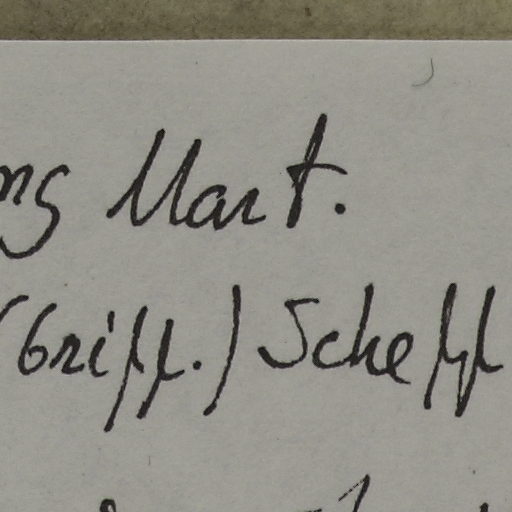 ng Mart.
(Griff.) Scheff